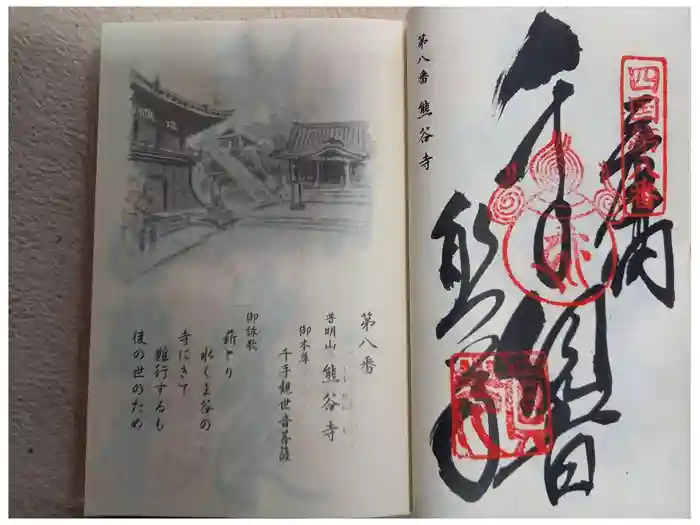 第八番 熊谷寺
四国第八番
奉納
千手観音
熊谷寺
第八番
普明山 熊谷寺
御本尊
千手観世音菩薩
御詠歌
薪とり
水くま谷の
寺にきて
難行するも
後の世のため